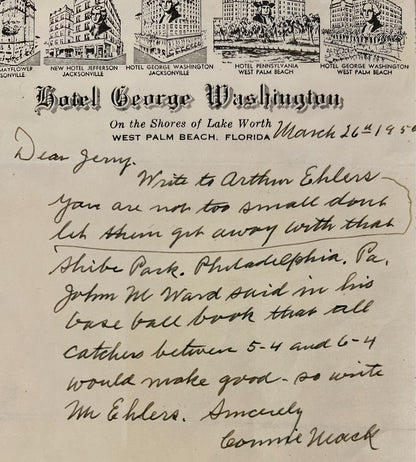 MAYFLOWER
JACKSONVILLE
NEW HOTEL JEFFERSON
JACKSONVILLE
HOTEL GEORGE WASHINGTON
JACKSONVILLE
HOTEL PENNSYLVANIA
WEST PALM BEACH
HOTEL GEORGE WASHINGTON
WEST PALM BEACH
Hotel George Washington
On the Shores of Lake Worth
WEST PALM BEACH, FLORIDA March 26th 1950
Dear Jerry.
Write to Arthur Ehlers
You are not too small dont
let them get away with that
Shibe Park. Philadelphia. Pa.
John M Ward said in his
base ball book that all
catchers between 5-4 and 6-4
would make good - so write
Mr Ehlers. Sincerely
Connie Mack